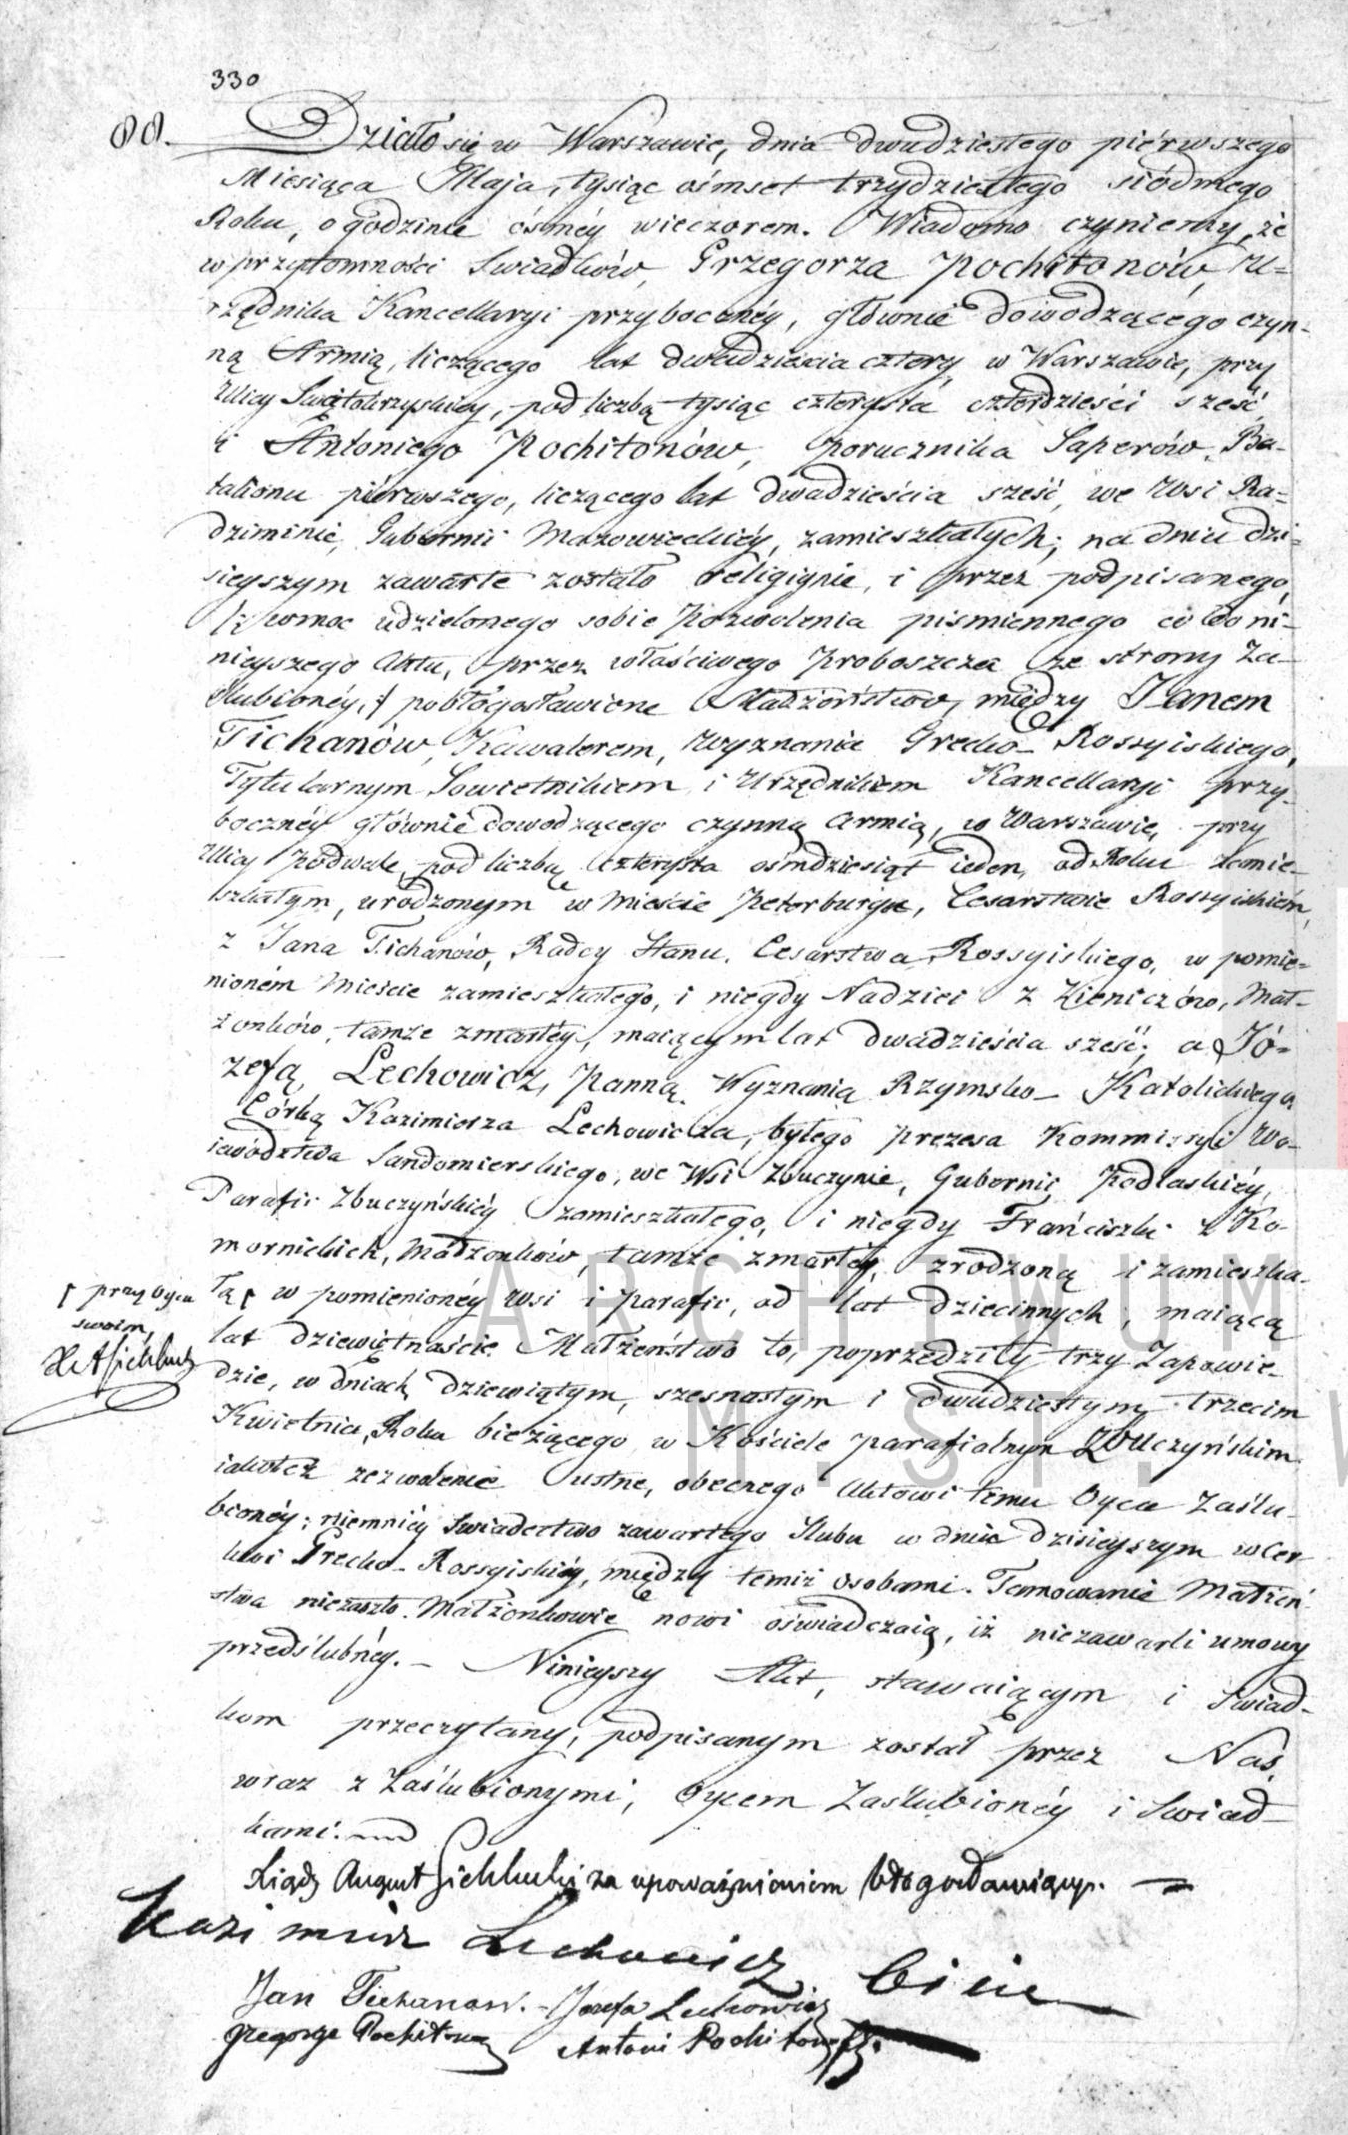 330
88. Działo się w Warszawie, dnia dwudziestego piérwszego
Miesiąca Maja, tysiąc ośmset trzydziestego siódmego
Roku, o godzinie ósméy wieczorem. Wiadomo czyniemy, że
w przytomności Swiadków, Grzegorza Pochitonów, U=
rzędnika Kancellaryi przybocznéy, głównie dowodzącego czyn-
ną Armią, liczącego lat dwadzieścia cztery, w Warszawie, przy
Ulicy Swiętokrzyskiey, pod liczbą tysiąc czterysta czterdzieści sześć,
i Antoniego Pochitonów, Porucznika Saperów, Ba-
talionu piérwszego, liczącego lat dwadzieścia sześć, we Wsi Ra=
dziminie, Gubernii Mazowieckiéy, zamieszkałych; na dniu dzi-
sieyszym zawarte zostało religiynie, i przez podpisanego,
/: w moc udzielonego sobie Pozwolenia piśmiennego co do ni-
nieyszego Aktu, przez właściwego Proboszcza ze strony Za-
ślubionéy, :/ pobłogosławione Małżeństwo, między Janem
Tichanów, Kawalerem, Wyznania Grecko-Rossyiskiego,
Tytularnym Sowietnikiem i Urzędnikiem Kancellaryi przy-
bocznéy głównie dowodzącego czynną Armią, w Warszawie, przy
Ulicy Podwale, pod liczbą czterysta ośmdziesiąt ieden, od Roku zamie-
szkałym, urodzonym w Mieście Peterburgu, Cesarstwie Rossyiskiém,
z Jana Tichanów, Radcy Stanu, Cesarstwa Rossyiskiego, w pomie=
nioném Mieście zamieszkałego, i niegdy Nadziei z Zieniczów, Mał-
żonków, tamże zmarłéy, maiącym lat dwadzieścia sześć; a Jó-
zefą Lechowicz, Panną, Wyznania Rzymsko-Katolickiego,
Córką Kazimierza Lechowicza, byłego Prezesa Kommissyi Wo-
iewództwa Sandomierskiego, we Wsi Zbuczynie, Gubernii Podlaskiéy,
Parafii Zbuczyńskiéy zamieszkałego, i niegdy Franciszki z Ko-
mornickich, Małżonków, tamże zmarłéy, zrodzoną i zamieszka-
łą ┌ w pomienionéy Wsi i Parafii, od lat dziecinnych, maiącą
┌ przy Oycu
swoim,
lat dziewiętnaście. Małżeństwo to, poprzedziły trzy Zapowie-
dzie, w dniach dziewiątym, szesnastym i dwudziestym trzecim
Kwietnia, Roku bieżącego w Kościele Parafialnym Zbuczyńskim
iakotéż zezwolenie ustne, obecnego Aktowi temu Oyca Zaślu-
bionéy; niemniéy Swiadectwo zawartego Slubu w dniu dzisieyszym w Cer
kwi Grecko-Rossyiskiéy, między temiż osobami. Tamowanie Małżeń
stwa niezaszło. Małżonkowie nowi oświadczaią, iż niezawarli umowy
przedślubnéy. — Ninieyszy Akt, stawaiącym i Swiad-
kom przeczytany, podpisanym został przez Nas,
wraz z Zaślubionymi, Oycem Zaślubionéy i Swiad-
kami.
Xiądz August Sichlucki za upoważnieniem błogosławiący.
Kazimierz Lechowicz Oiciec
Jan Tichanow. - Jozefa Lechowicz
Grzegorz Pochitonow Antoni Pochitonow
ARCHIWUM
M. ST. W